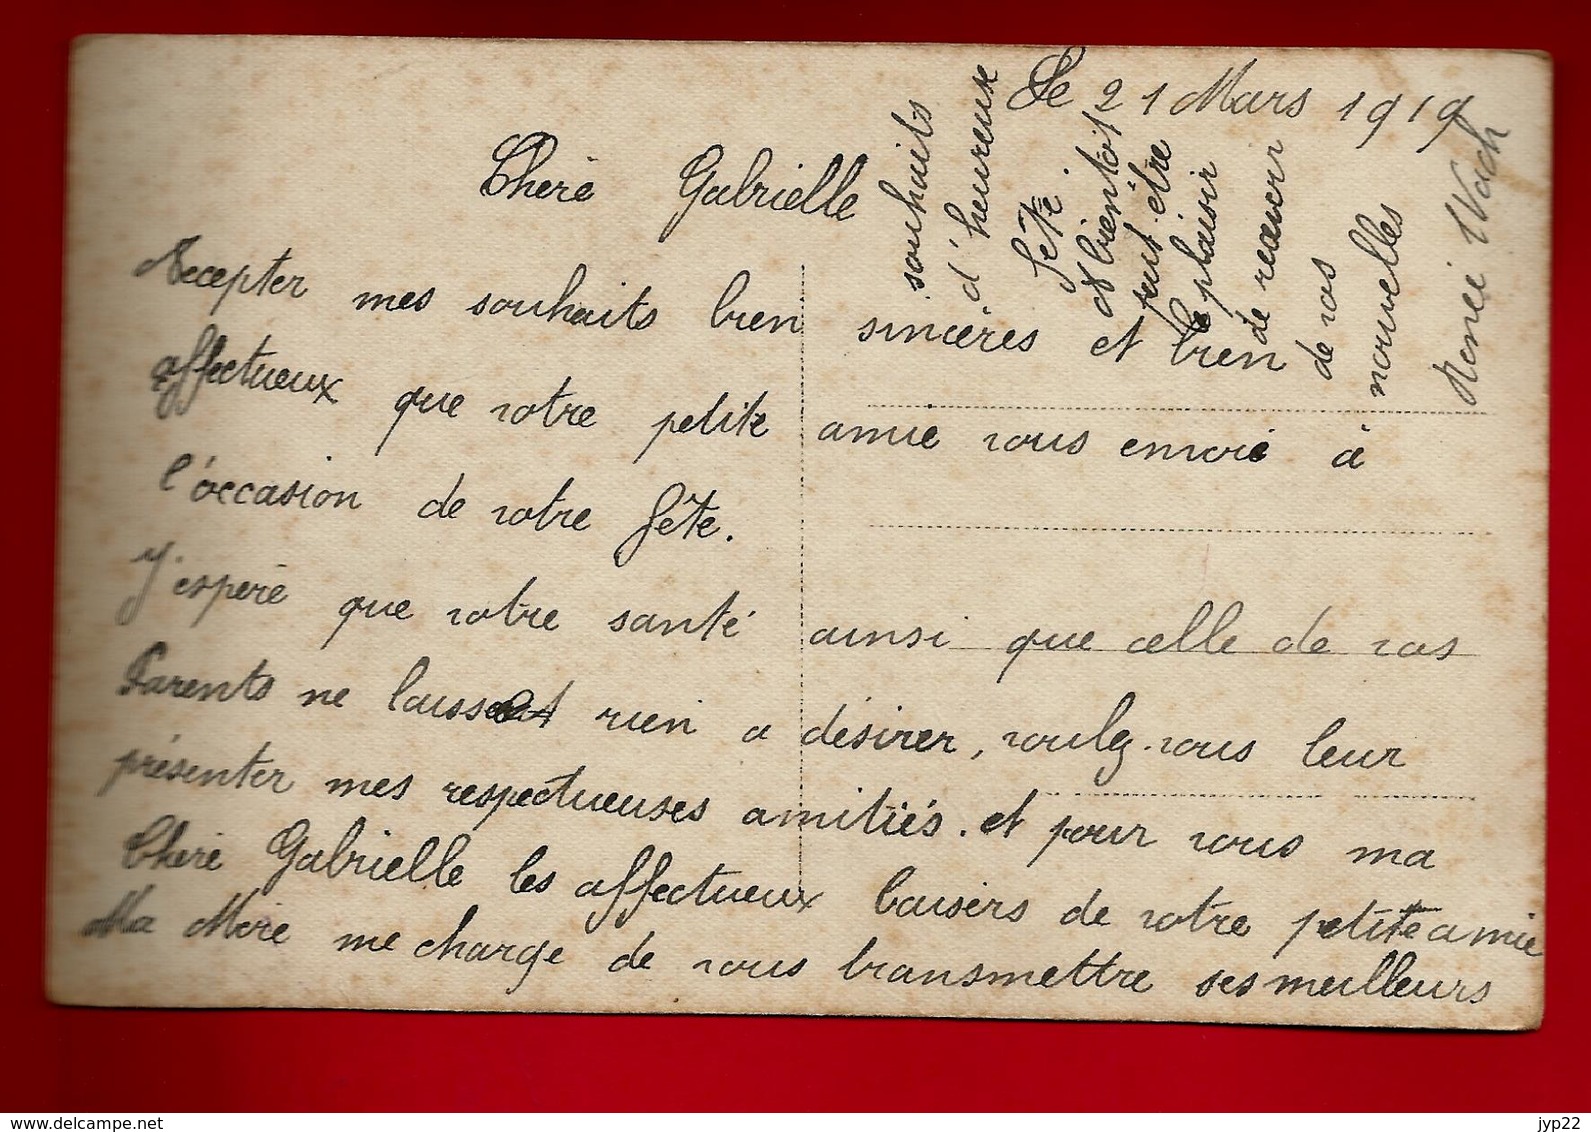 Le 21 Mars 1919
Cheré Gabrielle
Accepter mes souhaits bien sincères et bien
affectueux que votre petite amie vous envoie à
l'occasion de votre fête.
J'esperé que votre santé ainsi que celle de vos
Parents ne laissent rien a désirer, voulez-vous leur
présenter mes respectueuses amitiés. et pour vous ma
Cheré Gabrielle les affectueux baisers de votre petite amie
Ma Mère me charge de vous transmettre ses meilleurs
souhaits
d'heureuse
fête.
A bientôt
peut être
le plaisir
de recevoir
de vos
nouvelles
Renée Wach
delcampe.net
jyp22